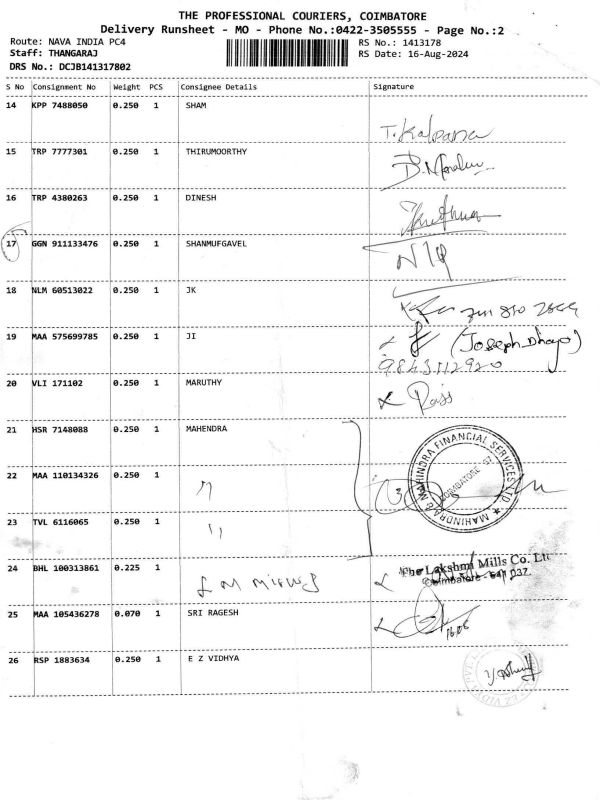 THE PROFESSIONAL COURIERS, COIMBATORE
Delivery Runsheet - MO - Phone No.:0422-3505555 - Page No.:2
Route: NAVA INDIA PC4 RS No.: 1413178
Staff: THANGARAJ RS Date: 16-Aug-2024
DRS No.: DCJB141317802
S No Consignment No Weight PCS Consignee Details Signature
14 KPP 7488050 0.250 1 SHAM
T. Kalpana
15 TRP 7777301 0.250 1 THIRUMOORTHY
16 TRP 4380263 0.250 1 DINESH
17 GGN 911133476 0.250 1 SHANMUFGAVEL
18 NLM 60513022 0.250 1 JK
19 MAA 575699785 0.250 1 JI
(Joseph Dhayo)
9843112920
20 VLI 171102 0.250 1 MARUTHY
21 HSR 7148088 0.250 1 MAHENDRA
MAHINDRA & MAHINDRA FINANCIAL SERVICES LTD.
COIMBATORE
22 MAA 110134326 0.250 1
23 TVL 6116065 0.250 1
24 BHL 100313861 0.225 1 L M Mills
The Lakshmi Mills Co. Lt
Coimbatore - 641 037.
25 MAA 105436278 0.070 1 SRI RAGESH
26 RSP 1883634 0.250 1 E Z VIDHYA